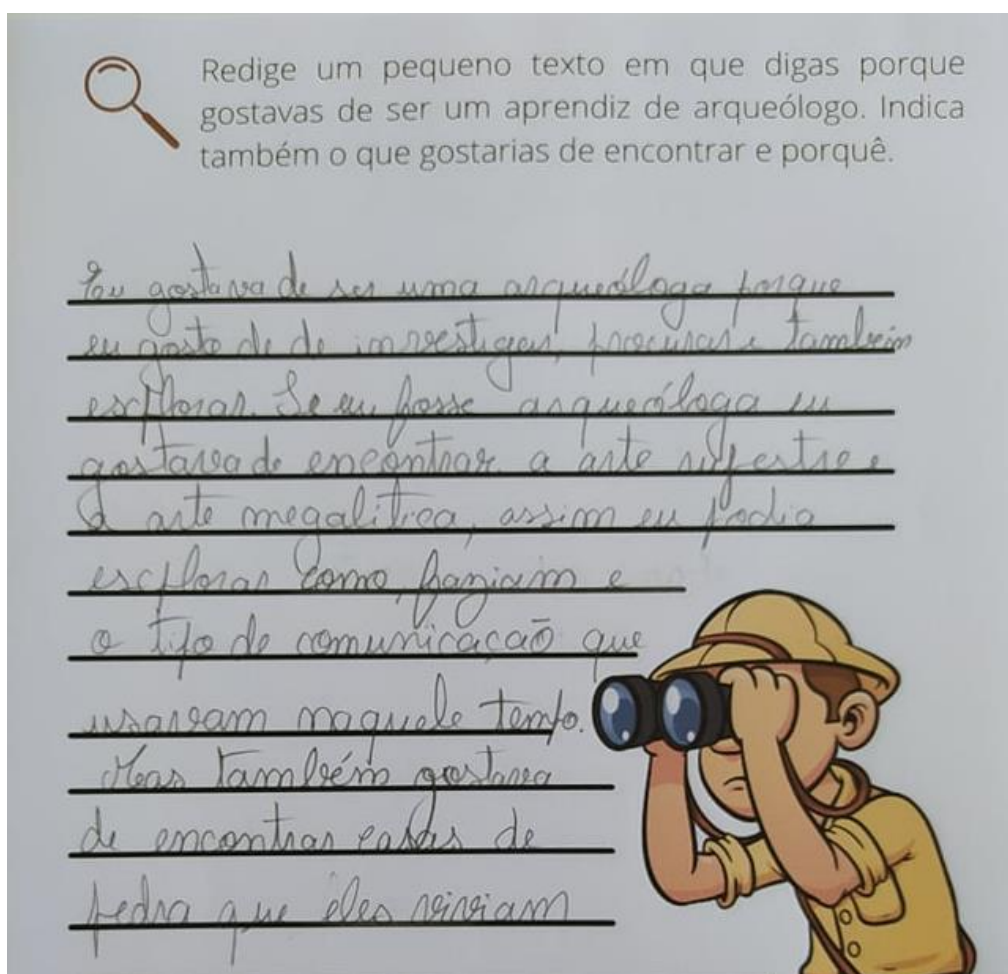 Redige um pequeno texto em que digas porque
gostavas de ser um aprendiz de arqueólogo. Indica
também o que gostarias de encontrar e porquê.
Eu gostava de ser uma arqueóloga porque
eu gosto de de investigar, procurar e também
escplorar. Se eu fosse arqueóloga eu
gostava de encontrar a arte rupestre e
a arte megalítica, assim eu podia
escplorar como faziam e
o tipo de comunicação que
usavam naquele tempo.
Mas também gostava
de encontrar casas de
pedra que eles viviam